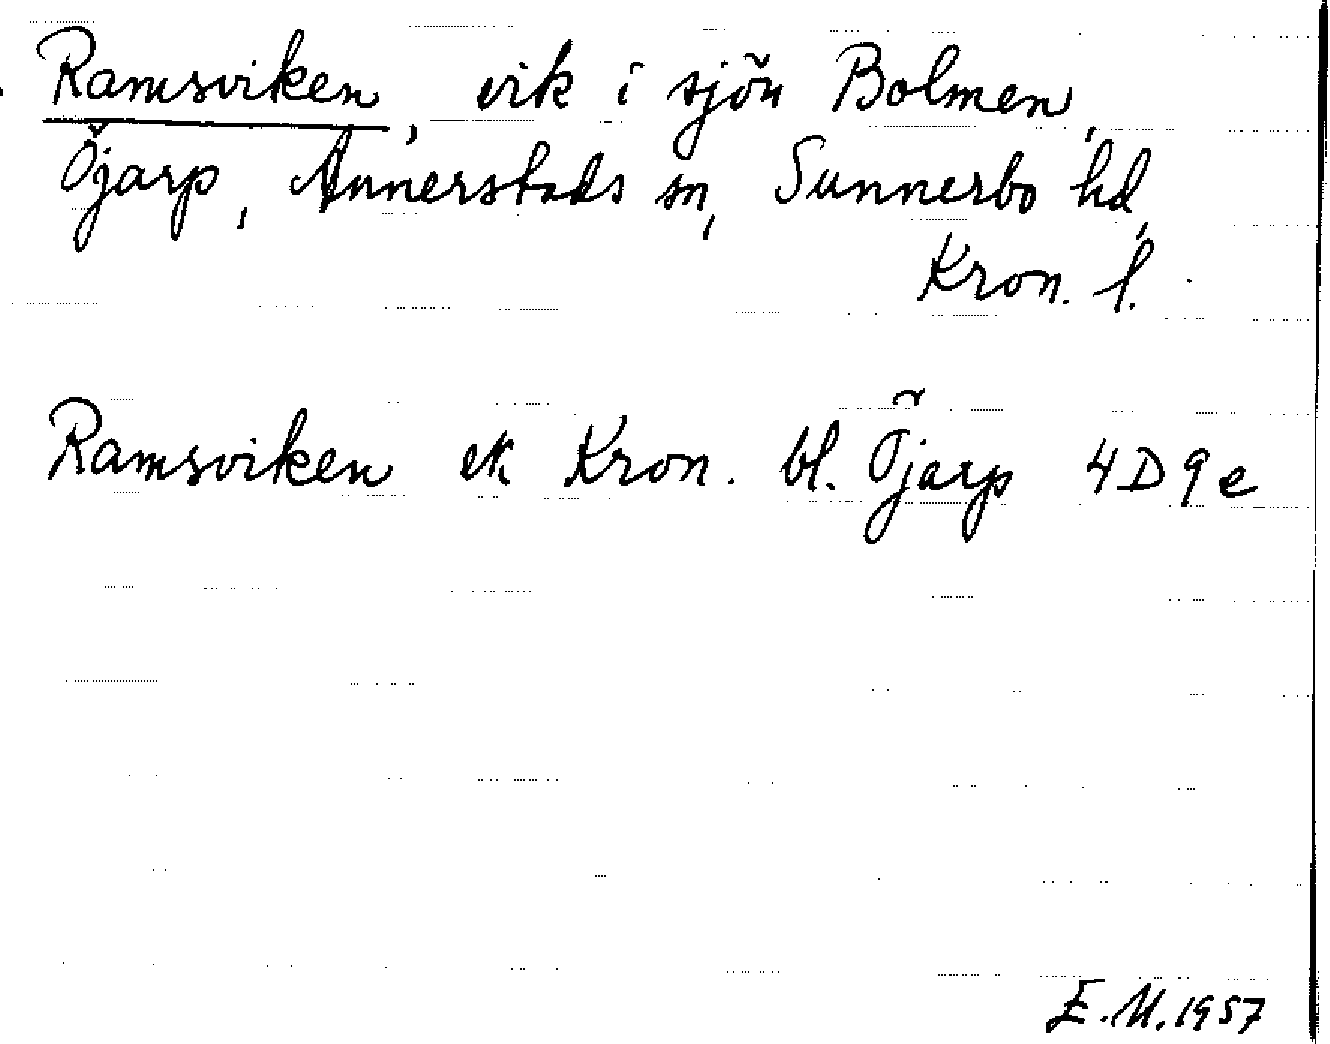 Ramsviken, vik i sjön Bolmen,
Öjarp, Annerstads sn, Sunnerbo hd,
Kron. l.
Ramsviken ek Kron. bl. Öjarp 4D9e
E.M. 1957